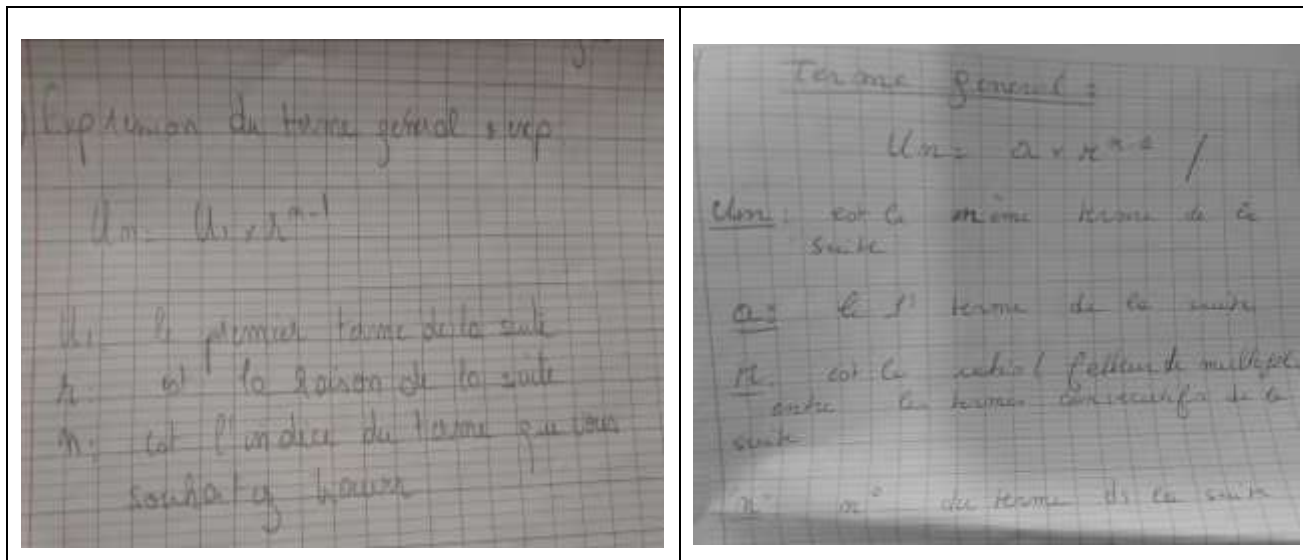 Expression du terme général
Un = U1 x r^n-1
U1: le premier terme de la suite
r: est la Raison de la suite
n: est l'indice du terme que vous
souhaitez
Terme general :
Un = a x r^n- /
Un : est le même terme de la
suite
a : le 1° terme de la suite
r est le
entre les termes consecutifs de la
suite
n° n° du terme de la suite